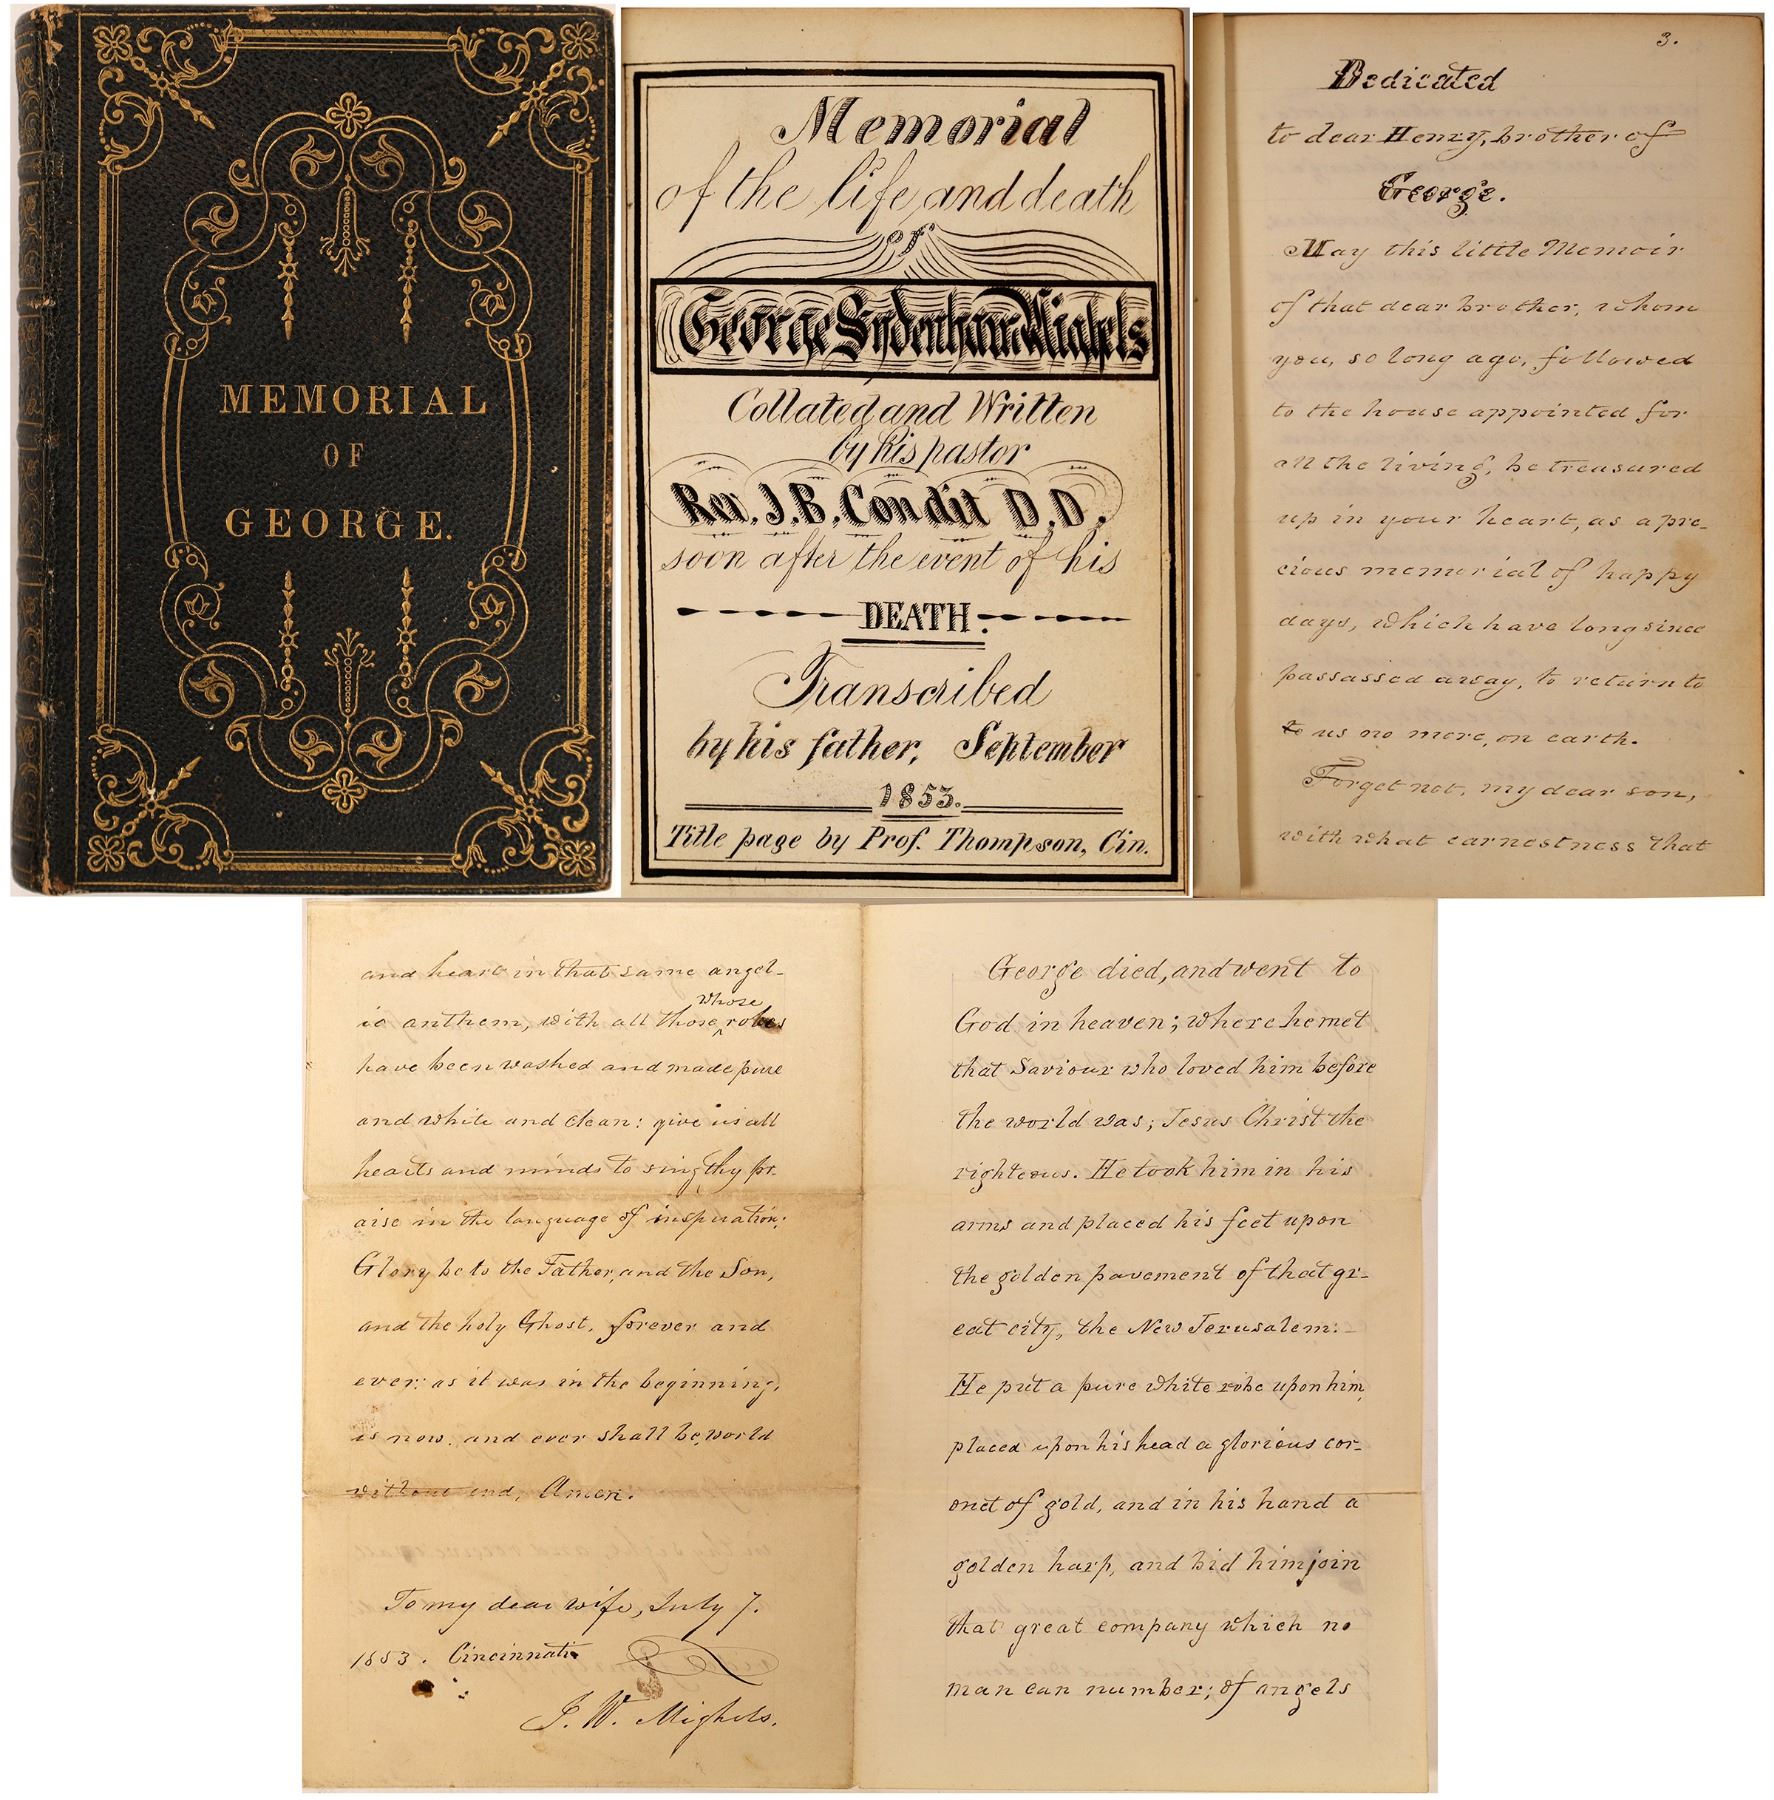 MEMORIAL
OF
GEORGE.
Memorial
of the life and death
of
George Sydenham Mighels
Collated and Written
by his pastor
Rev. J. B. Condit D. D.
soon after the event of his
DEATH.
Transcribed
by his father, September
1853.
Title page by Prof. Thompson, Cin.
3.
Dedicated
to dear Henry, brother of
George.
May this little Memoir
of that dear brother, whom
you, so long ago, followed
to the house appointed for
all the living, be treasured
up in your heart, as a pre-
cious memorial of happy
days, which have long since
passassed away, to return to
to us no more, on earth.
Forget not, my dear son,
with what earnestness that
and heart in that same angel-
ic anthem, with all those robes
whose
have been washed and made pure
and white and clean: give us all
hearts and minds to sing thy pr-
aise in the language of inspiration:
Glory be to the Father, and the Son,
and the holy Ghost, forever and
ever: as it was in the beginning,
is now, and ever shall be, world
without end, Amen.
To my dear wife, July 7.
1853. Cincinnati
J. W. Mighels.
George died, and went to
God in heaven; where he met
that Saviour who loved him before
the world was; Jesus Christ the
righteous. He took him in his
arms and placed his feet upon
the golden pavement of that gr-
eat city, the New Jerusalem:-
He put a pure white robe upon him,
placed upon his head a glorious cor-
onet of gold, and in his hand a
golden harp, and bid him join
that great company which no
man can number; of angels